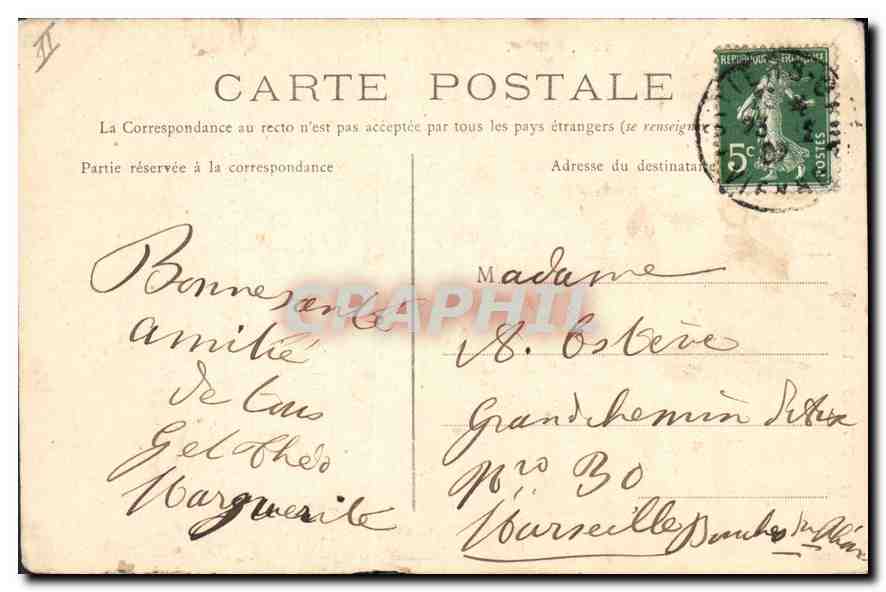 II
CARTE POSTALE
La Correspondance au recto n'est pas acceptée par tous les pays étrangers (se renseigne
Partie réservée à la correspondance
Adresse du destinata
REPUBLIQUE FRANÇAISE
5c
POSTES
Bonne santé
amitié
de tous
G et Théo
Marguerite
CPAPHIL
Madame
A. Estève
Grand chemin d'Aix
Nro 30
Marseille Bouches du Rhône